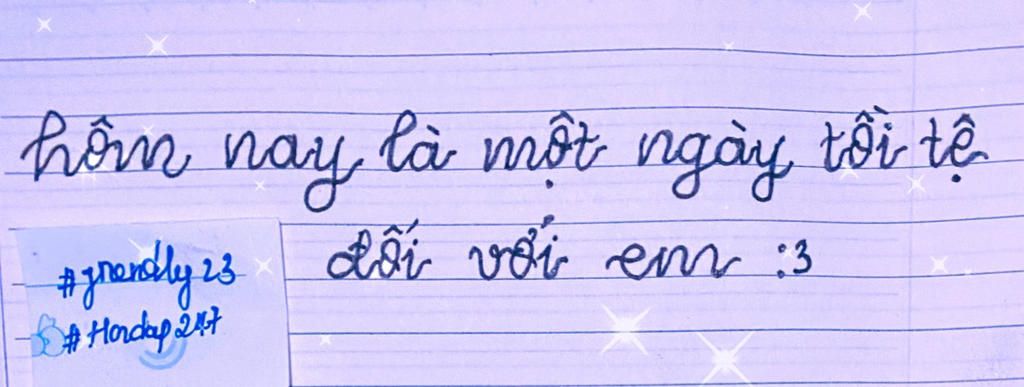 hôm nay là một ngày tồi tệ
đối với em :3
#friendly 23
#Hoidap 247